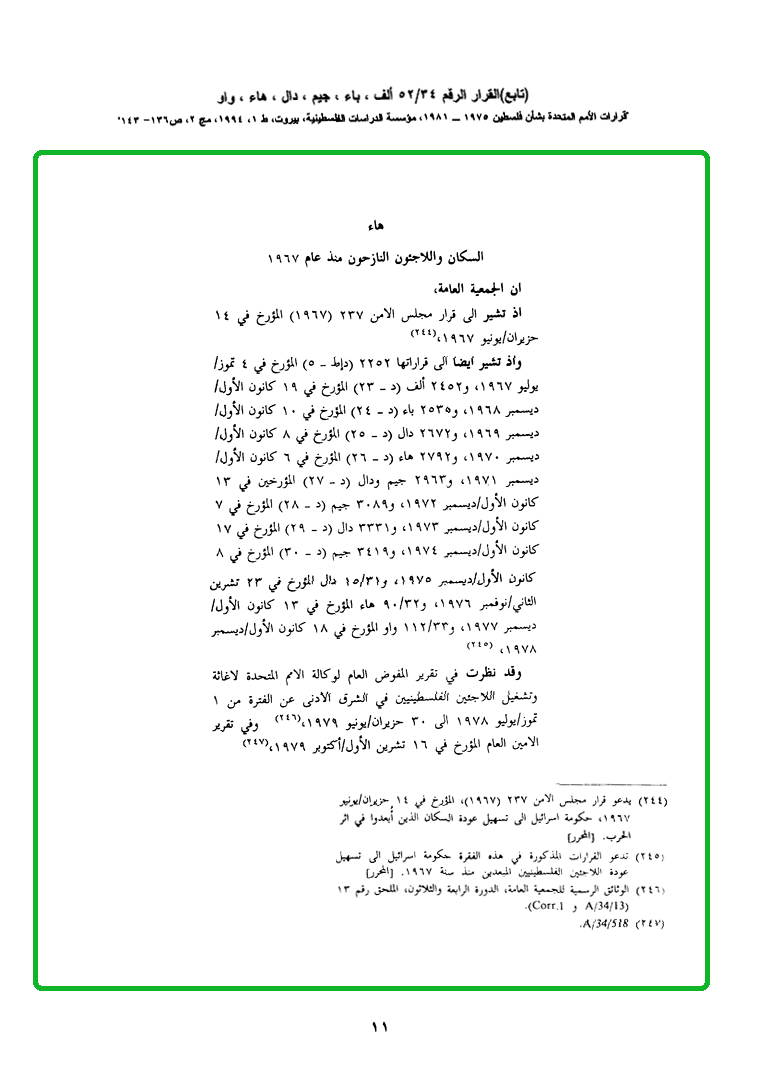 (تابع)القرار الرقم ٥٢/٣٤ ألف ، باء ، جيم ، دال ، هاء ، واو
"قرارات الأمم المتحدة بشأن فلسطين ١٩٧٥ ــ ١٩٨١، مؤسسة الدراسات الفلسطينية، بيروت، ط ١، ١٩٩٤، مج ٢، ص١٣٦- ١٤٣"
هاء
السكان واللاجئون النازحون منذ عام ١٩٦٧
ان الجمعية العامة،
اذ تشير الى قرار مجلس الامن ٢٣٧ (١٩٦٧) المؤرخ في ١٤
حزيران/يونيو ١٩٦٧،(٢٤٤)
واذ تشير ايضا الى قراراتها ٢٢٥٢ (دإط ـ ٥) المؤرخ في ٤ تموز/
يوليو ١٩٦٧، و٢٤٥٢ ألف (د ـ ٢٣) المؤرخ في ١٩ كانون الأول/
ديسمبر ١٩٦٨، و٢٥٣٥ باء (د ـ ٢٤) المؤرخ في ١٠ كانون الأول/
ديسمبر ١٩٦٩، و٢٦٧٢ دال (د ـ ٢٥) المؤرخ في ٨ كانون الأول/
ديسمبر ١٩٧٠، و٢٧٩٢ هاء (د ـ ٢٦) المؤرخ في ٦ كانون الأول/
ديسمبر ١٩٧١، و٢٩٦٣ جيم ودال (د ـ ٢٧) المؤرخين في ١٣
كانون الأول/ديسمبر ١٩٧٢، و٣٠٨٩ جيم (د ـ ٢٨) المؤرخ في ٧
كانون الأول/ديسمبر ١٩٧٣، و٣٣٣١ دال (د ـ ٢٩) المؤرخ في ١٧
كانون الأول/ديسمبر ١٩٧٤، و٣٤١٩ جيم (د ـ ٣٠) المؤرخ في ٨
كانون الأول/ديسمبر ١٩٧٥، و١٥/٣١ دال المؤرخ في ٢٣ تشرين
الثاني/نوفمبر ١٩٧٦، و٩٠/٣٢ هاء المؤرخ في ١٣ كانون الأول/
ديسمبر ١٩٧٧، و١١٢/٣٣ واو المؤرخ في ١٨ كانون الأول/ديسمبر
١٩٧٨، (٢٤٥)
وقد نظرت في تقرير المفوض العام لوكالة الامم المتحدة لاغاثة
وتشغيل اللاجئين الفلسطينيين في الشرق الادنى عن الفترة من ١
تموز/يوليو ١٩٧٨ الى ٣٠ حزيران/يونيو ١٩٧٩،(٢٤٦) وفي تقرير
الامين العام المؤرخ في ١٦ تشرين الأول/أكتوبر ١٩٧٩،(٢٤٧)
(٢٤٤) يدعو قرار مجلس الامن ٢٣٧ (١٩٦٧)، المؤرخ في ١٤ حزيران/يونيو
١٩٦٧، حكومة اسرائيل الى تسهيل عودة السكان الذين أُبعدوا في اثر
الحرب. [المحرر]
(٢٤٥) تدعو القرارات المذكورة في هذه الفقرة حكومة اسرائيل الى تسهيل
عودة اللاجئين الفلسطينيين المبعدين منذ سنة ١٩٦٧. [المحرر]
(٢٤٦) الوثائق الرسمية للجمعية العامة، الدورة الرابعة والثلاثون، الملحق رقم ١٣
(A/34/13 و Corr.1).
(٢٤٧) A/34/518.
١١